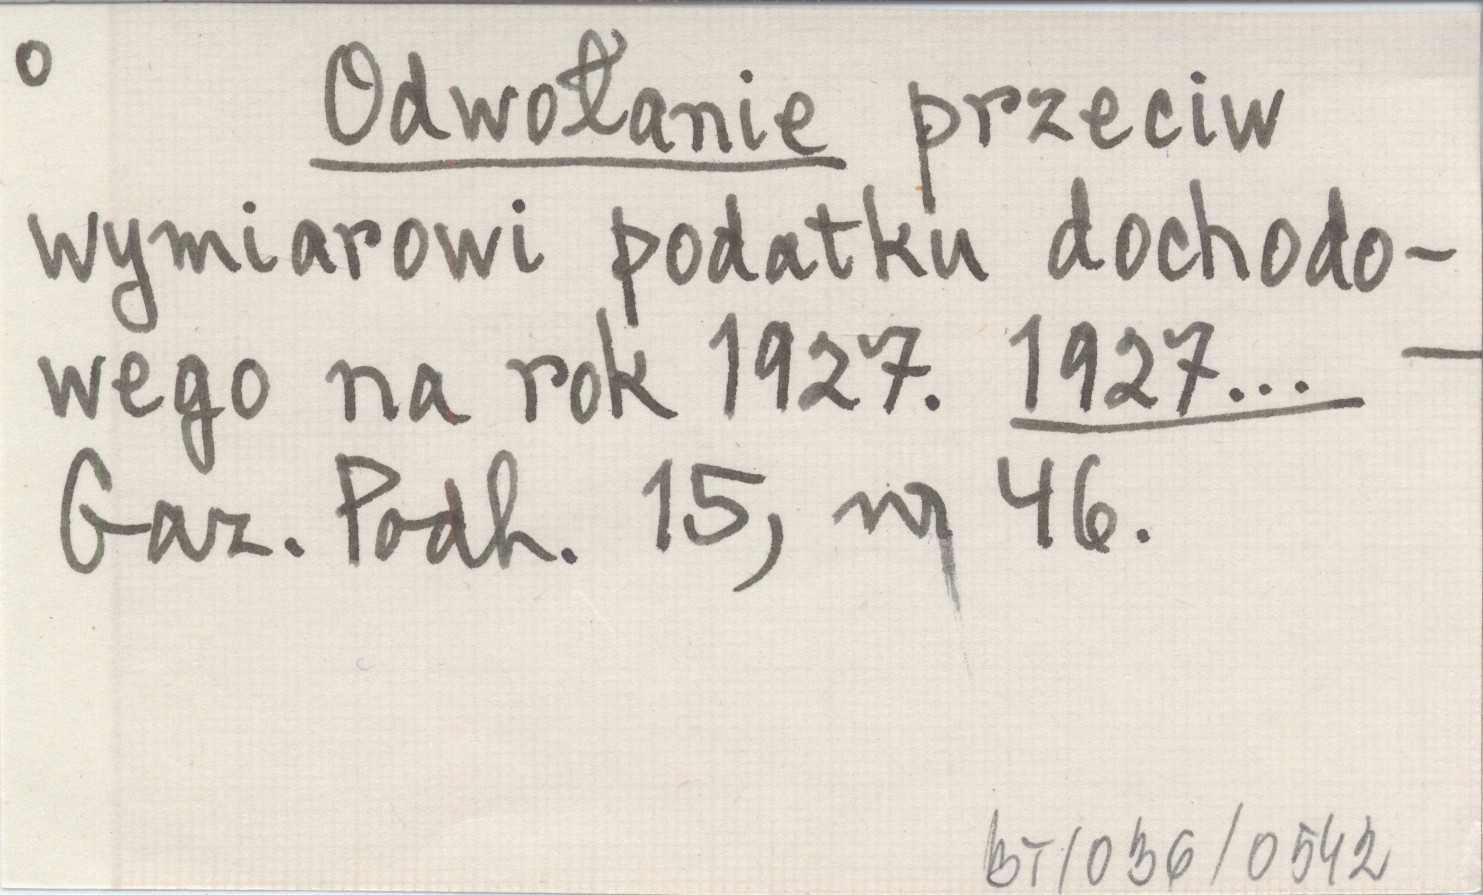 o
Odwołanie przeciw
wymiarowi podatku dochodo-
wego na rok 1927. 1927... –
Gaz. Podh. 15, nr 46.
BT/036/0542